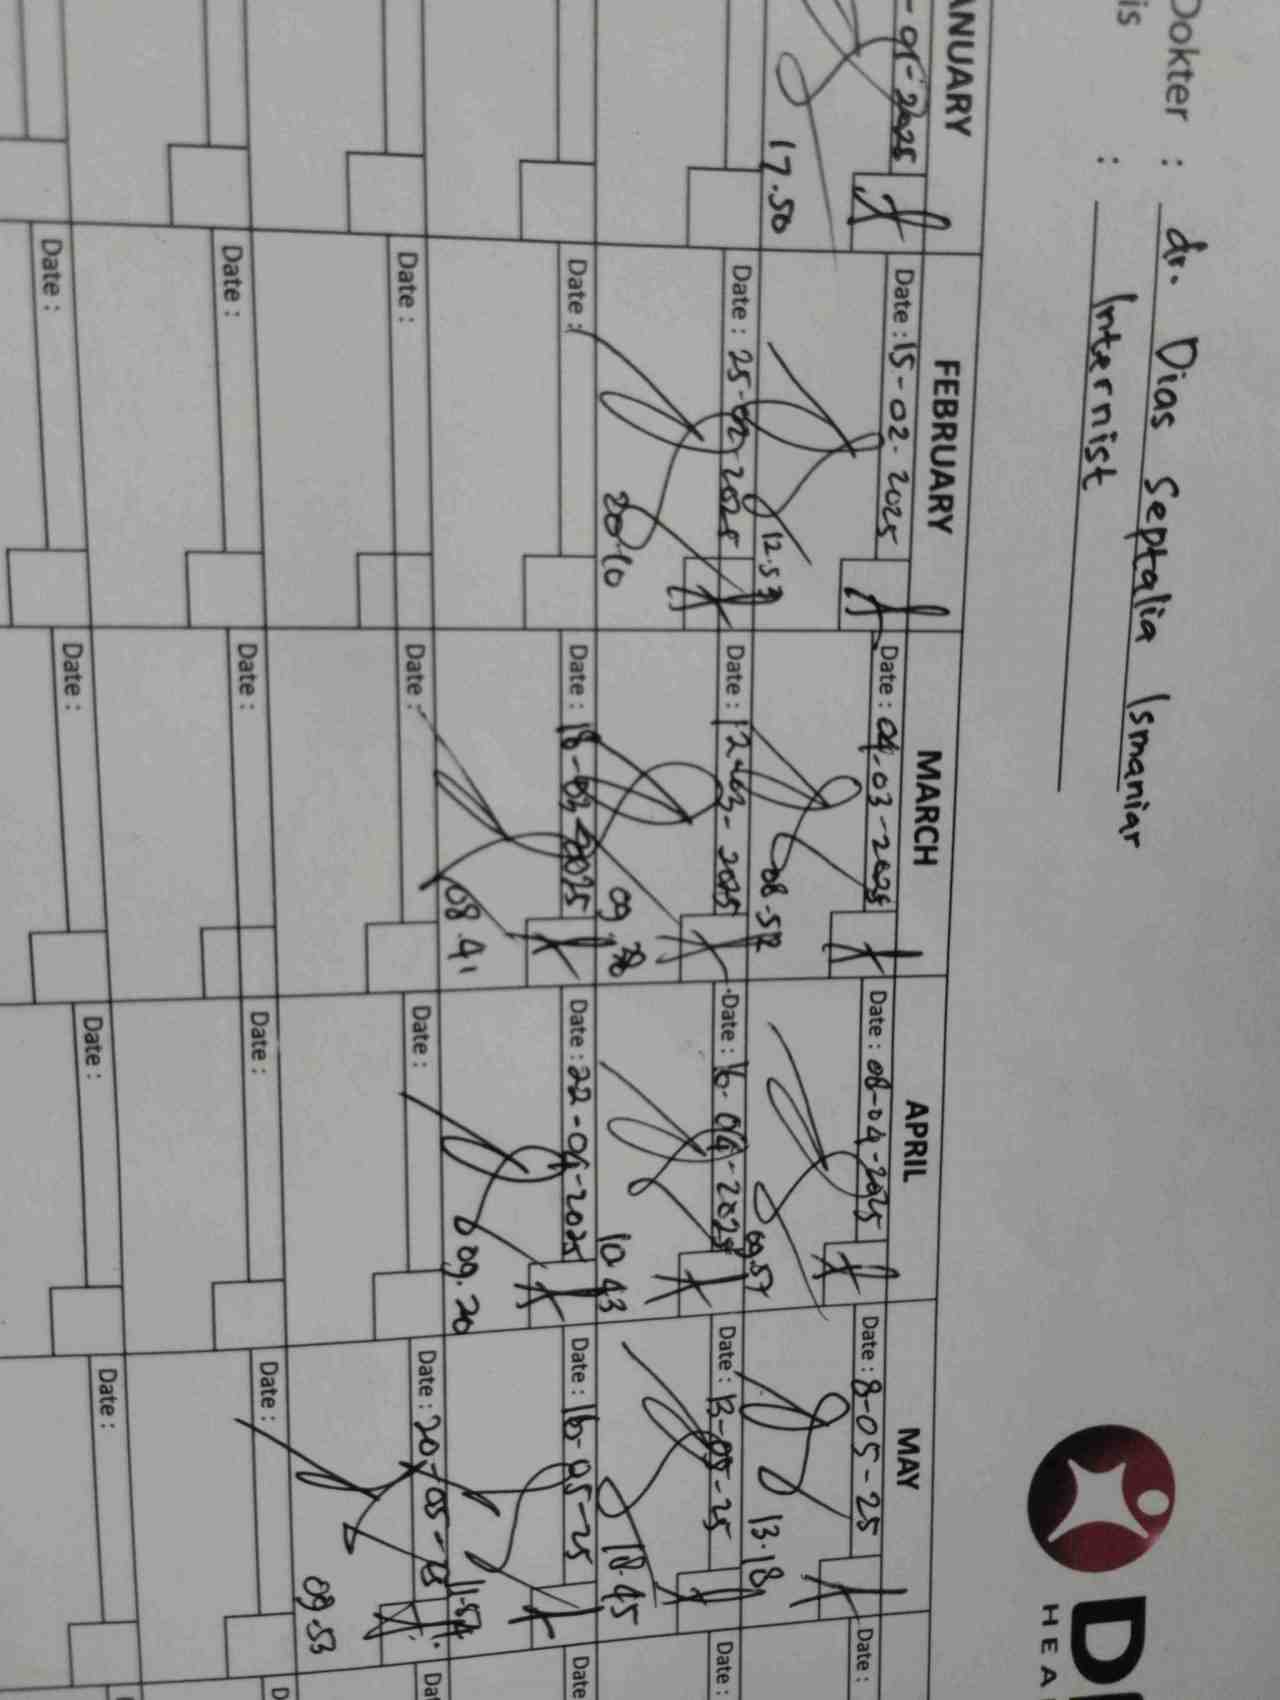 Dokter : dr. Dias Septalia Ismaniar
is : Internist
HEA
ANUARY FEBRUARY MARCH APRIL MAY
2025 Date : 15-02-2025 Date : 04-03-2025 Date : 08-04-2025 Date : 8-05-25 Date :
17.50 12.53 08.52 09.57 13.18
Date : 25-02-2025 Date : 12-03-2025 Date : 16-04-2025 Date : 13-05-25 Date :
20.10 09 10.43 18.45
Date : Date : 18-03-2025 Date : 22-04-2025 Date : 16-05-25 Date
08.41 09.20
Date : Date : Date : Date : 20-05-25 Dat
09.53
Date : Date : Date : Date : D
Date : Date : Date : Date :